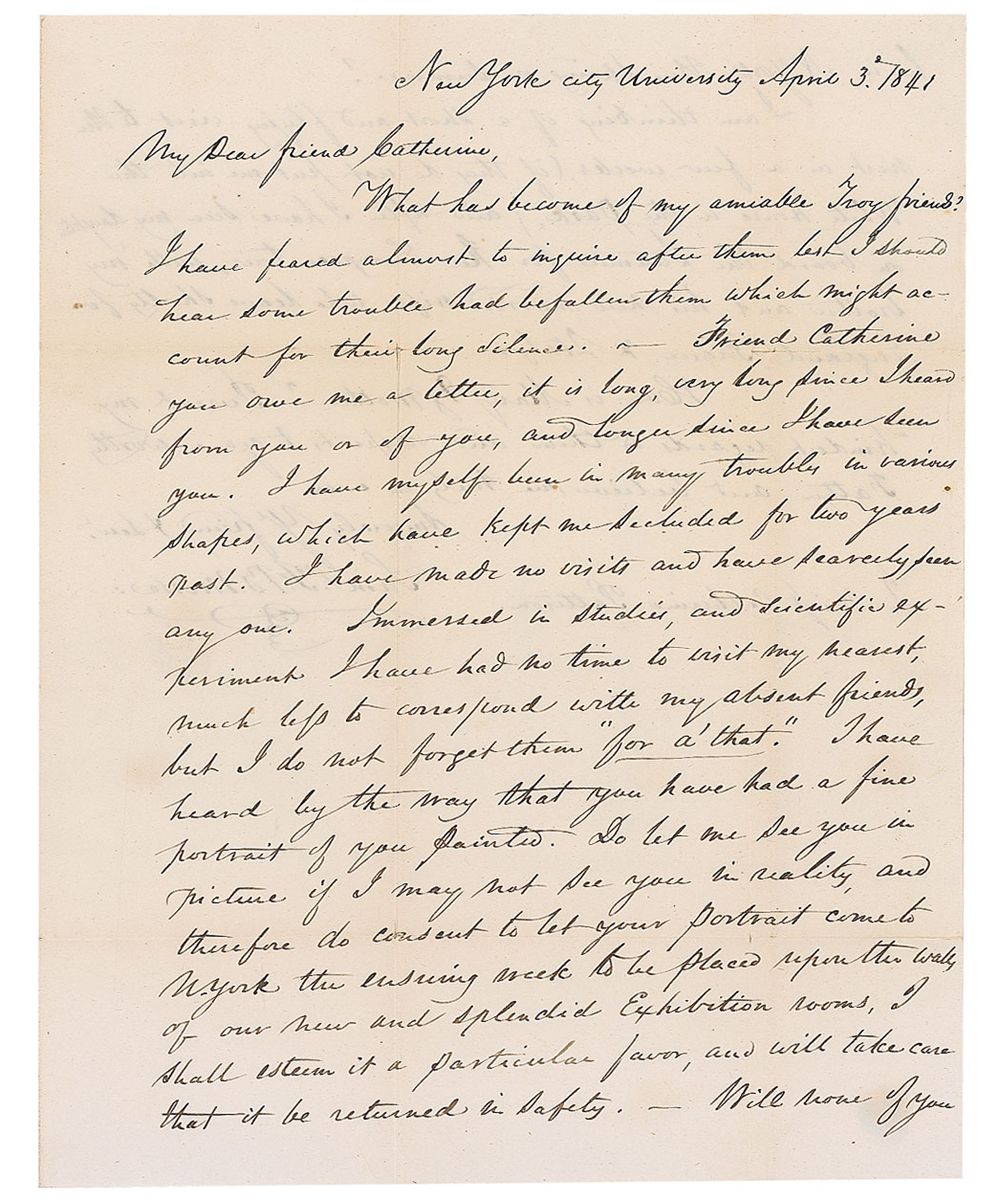 New York city University April 3.d 1841
My Dear friend Catherine,
What has become of my amiable Troy friends?
I have feared almost to inquire after them lest I should
hear some trouble had befallen them which might ac-
count for their long silence. — Friend Catherine
you owe me a letter, it is long, very long since I heard
from you or of you, and longer since I have seen
you. I have myself been in many troubles in various
shapes, which have kept me secluded for two years
past. I have made no visits and have scarcely seen
any one. Immersed in studies, and scientific ex-
periment I have had no time to visit my nearest,
much less to correspond with my absent friends,
but I do not forget them "for a' that." I have
heard by the way that you have had a fine
portrait of you painted. Do let me see you in
picture if I may not see you in reality, and
therefore do consent to let your portrait come to
N. York the ensuing week to be placed upon the walls
of our new and splendid Exhibition rooms, I
shall esteem it a particular favor, and will take care
that it be returned in safety. — Will none of you